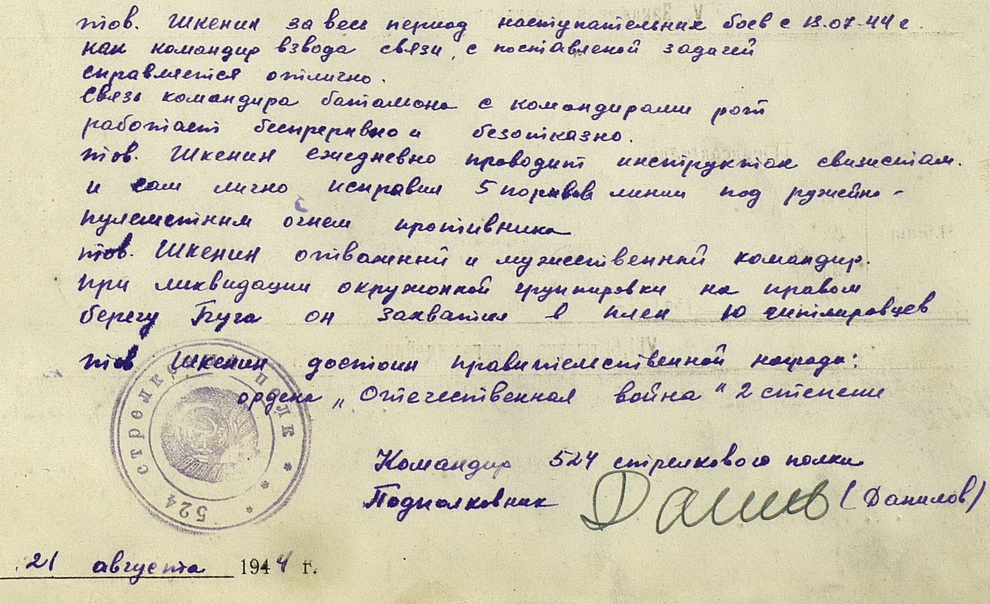 тов. Шкенин за веси период наступательних боев с 13.07.44 г.
как командир взвода связи, с поставленой задачей
справляется отлично.
связь командира батальона с командирами рот
работает беспреривно и безотказно.
тов. Шкенин ежедневно проводит инструктаж связистам.
и сам лично исправил 5 поривов линии под ружейно-
пулеметним огнем противника
тов. Шкенин отважений и мужественний командир.
При ликвидации окружонной групировки на правом
берегу Буга он захватил в плен 10 гитлеровцев
тов Шкенин достоин правительственной награда:
ордена „Отечественная война" 2 степени
Командир 524 стрелкового полка
Подполковник Данилов (Данилов)
524 стрелковый полк
21 августа 1944 г.